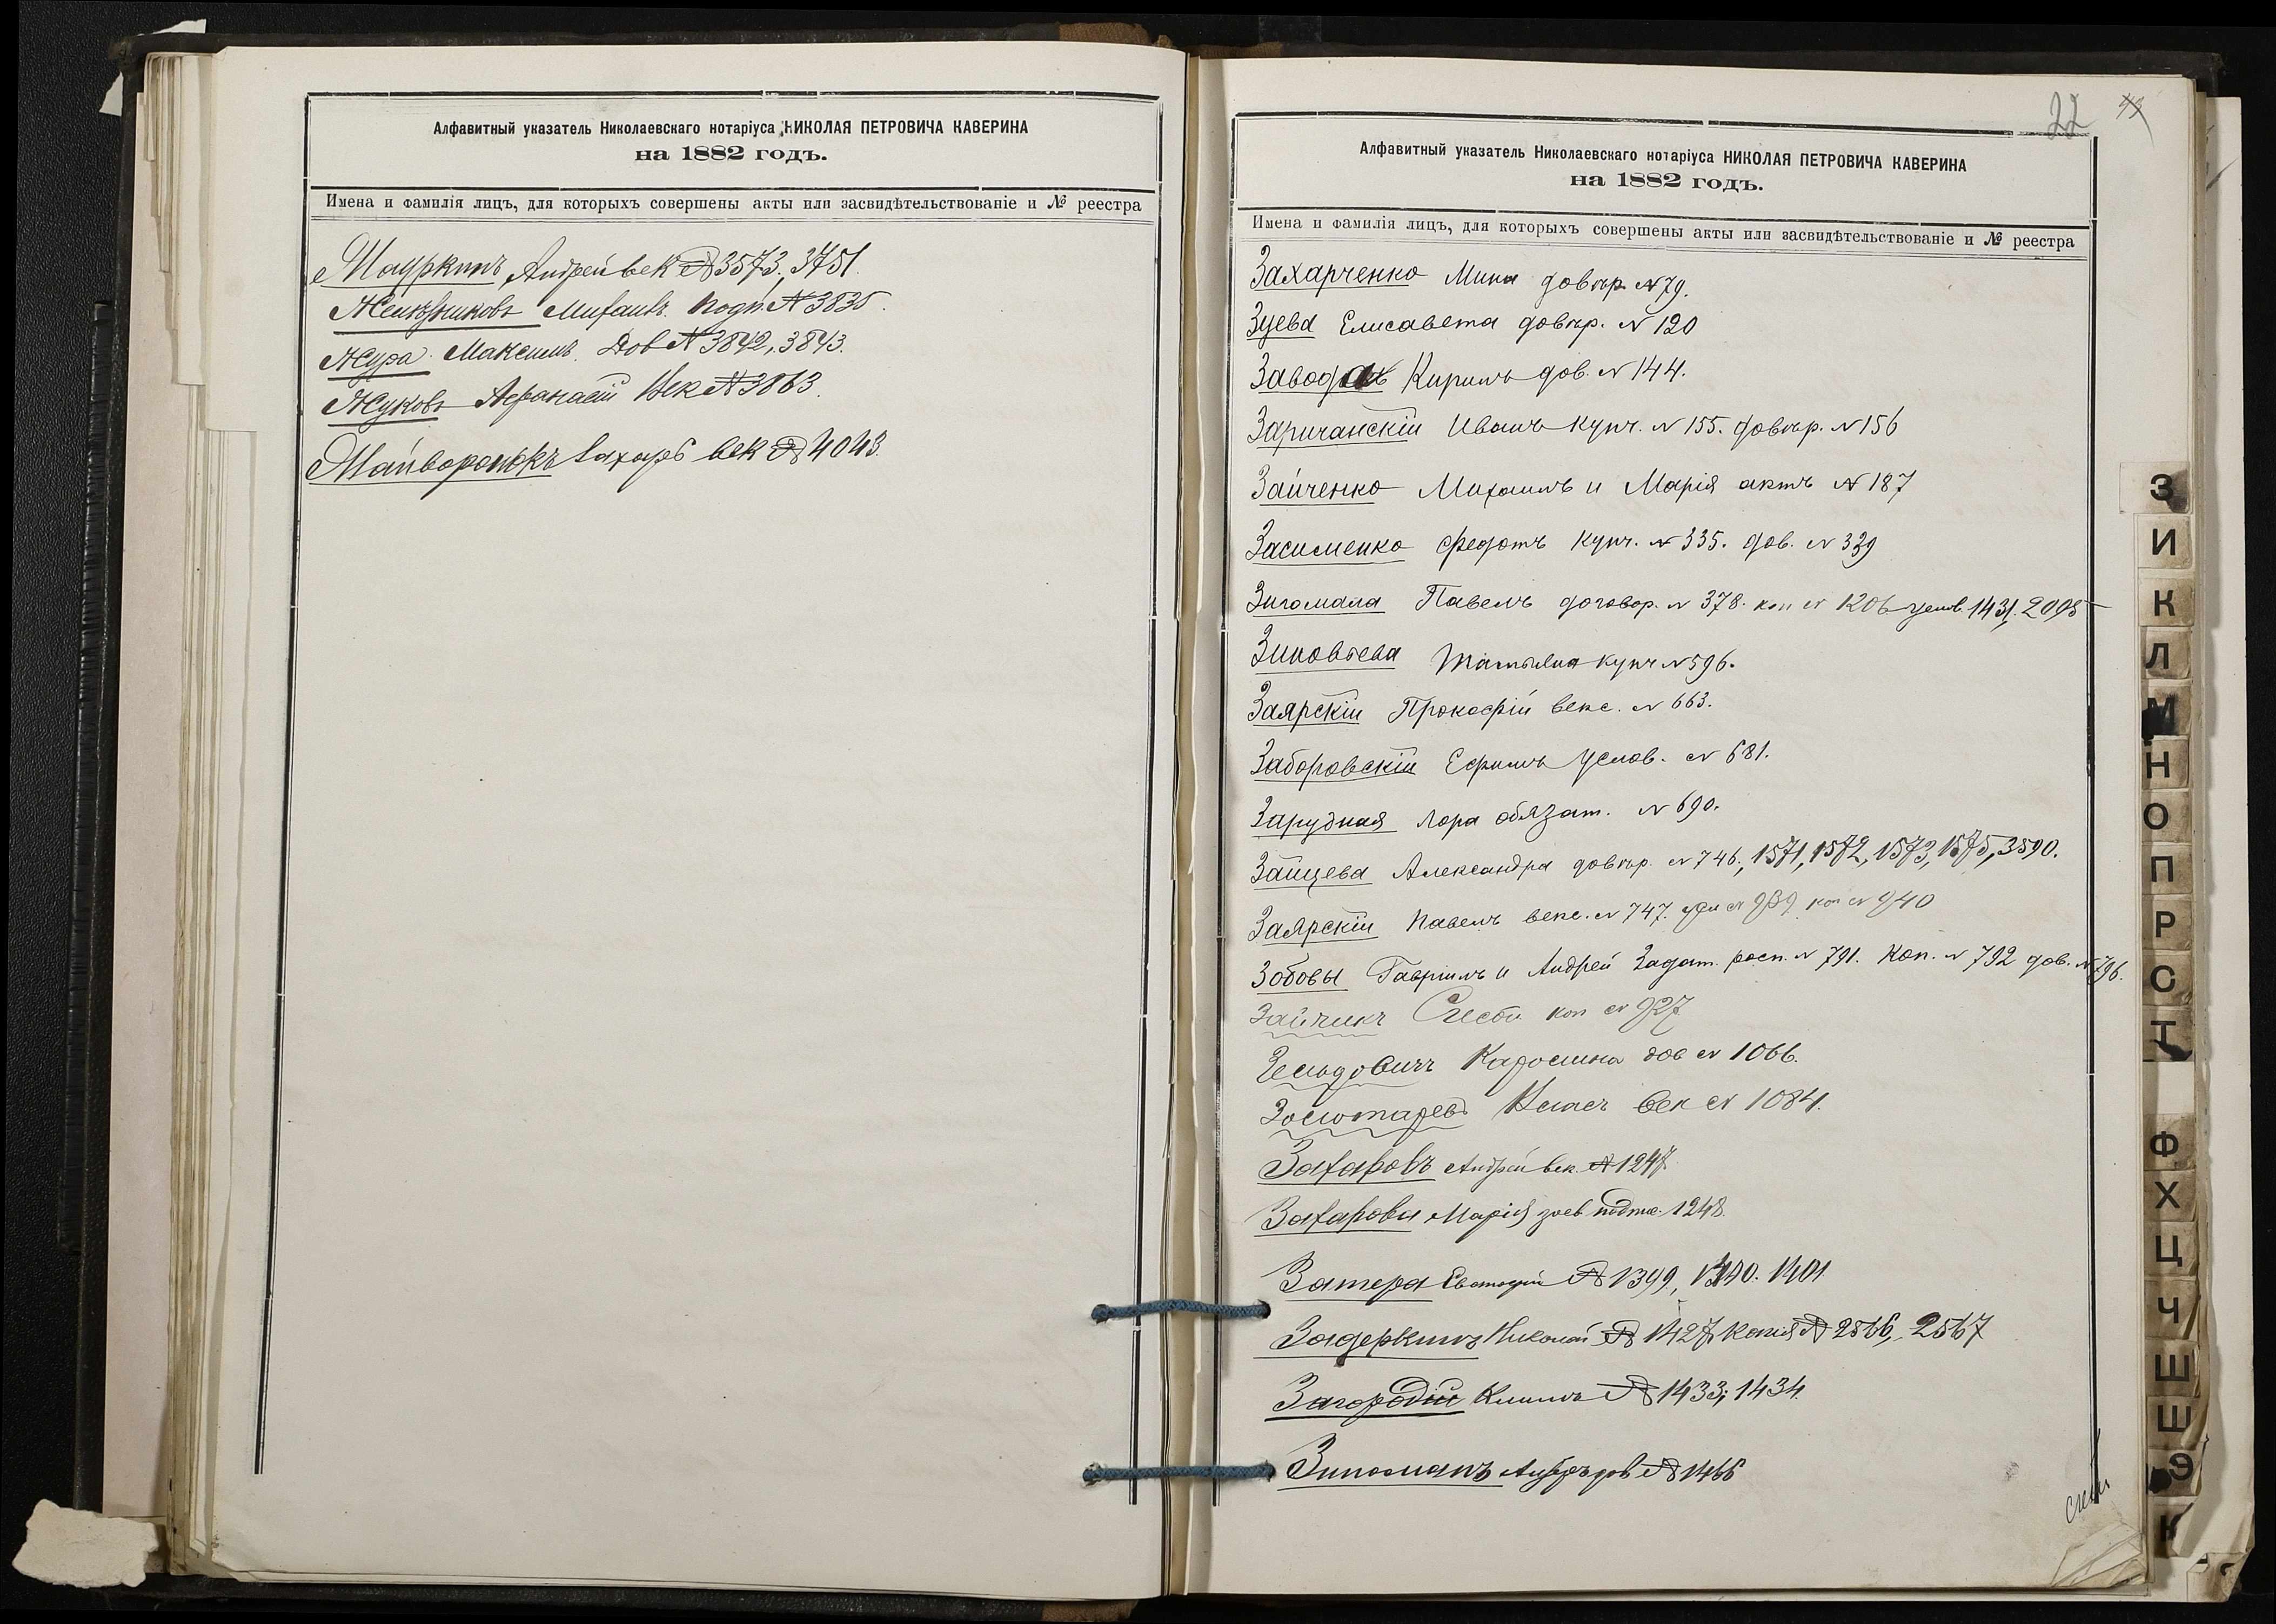 Алфавитный указатель Николаевскаго нотаріуса НИКОЛАЯ ПЕТРОВИЧА КАВЕРИНА
на 1882 годъ.
Имена и фамилія лицъ, для которыхъ совершены акты или засвидѣтельствованіе и № реестра
Андрей век № 3573, 3751.
Желѣзниковъ Михаилъ подп. № 3835.
Жура Максимъ. Дов № 3842, 3843.
Жуковъ Афанасій Век № 3863.
Жайворонокъ Захаръ век № 4043.
22
Алфавитный указатель Николаевскаго нотаріуса НИКОЛАЯ ПЕТРОВИЧА КАВЕРИНА
на 1882 годъ.
Имена и фамилія лицъ, для которыхъ совершены акты или засвидѣтельствованіе и № реестра
Захарченко Мина довѣр. № 79.
Зуева Елисавета довѣр. № 120
Кирилъ дов. № 144.
Заричанскій Иванъ купч. № 155. довѣр. № 156
Зайченко Михаилъ и Марія актъ № 187
Засименко Федотъ купч. № 335. дов. № 339
Зигомала Павелъ договор. № 378. коп № 1206 услов. 1431. 2095
Зиновьева Татьяна купч № 596.
Заярскій Прокофій векс. № 663.
Заборовскій Ефимъ услов. № 681.
Зарудная Лора обязат. № 690.
Зайцева Александра довѣр. № 746, 1571, 1572, 1573, 1575, 3590.
Заярскій Павелъ векс. № 747. № 939 коп № 940
Зобовы Гавріилъ и Андрей Задат. росп. № 791. Коп. № 792 дов. № 796.
Зайчикъ коп № 927
Зельдовичъ Каролина дов № 1066.
Золотаревъ Власъ век № 1084.
Захаровъ Андрей век. № 1247
Захарова Марія 1248.
Затера № 1399, 1400. 1401
Задеркинъ Николай № 1427, копія № 2566, 2567
Загородій Климъ № 1433, 1434
дов № 1466
З
И
К
Л
М
Н
О
П
Р
С
Т
Ф
Х
Ц
Ч
Ш
Щ
Э